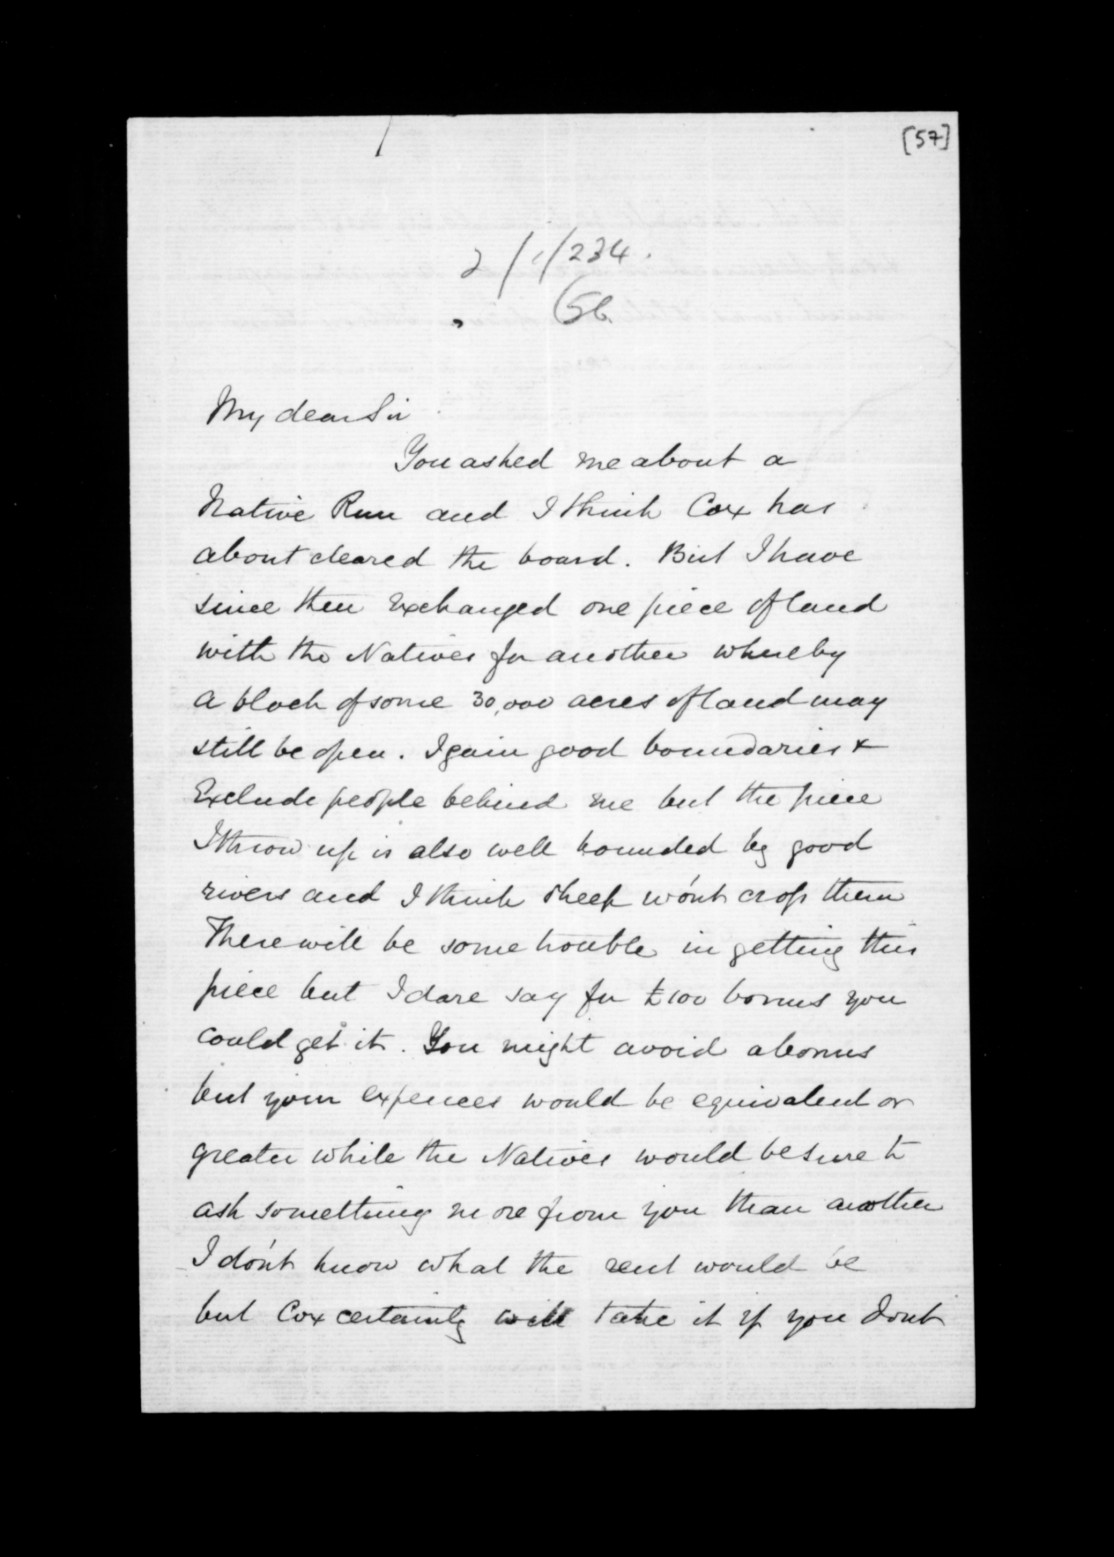 [57]
2/1/234.
56.
My dear Sir
You asked me about a
Native Run and I think Cox has
about cleared the board. But I have
since then Exchanged one piece of land
with the Natives for another whereby
a block of some 30,000 acres of land may
still be open. I gain good boundaries &
Exclude people behind me but the piece
I throw up is also well bounded by good
rivers and I think sheep wo'nt cross them
There will be some trouble in getting this
piece but I dare say for £100 bonus you
could get it. You might avoid a bonus
but your expences would be equivalent or
greater while the Natives would be sure to
ask something more from you than another
I do'nt know what the rent would be
but Cox certainly will take it if you dont